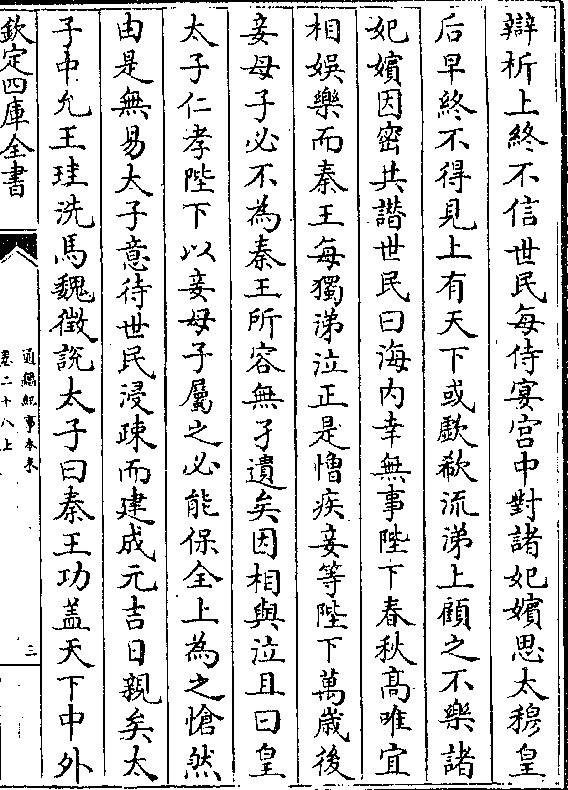 辯析上終不信世民每侍宴宮中對諸妃嬪思太穆皇
后早終不得見上有天下或歔欷流涕上顧之不樂諸
妃嬪因密共譖世民曰海內幸無事陛下春秋高唯宜
相娛樂而秦王每獨涕泣正是憎疾妾等陛下萬歲後
妾母子必不為秦王所容無孑遺矣因相與泣且曰皇
太子仁孝陛下以妾母子屬之必能保全上為之愴然
由是無易太子意待世民浸疎而建成元吉日親矣太
子中允王珪洗馬魏徵說太子曰秦王功蓋天下中外
欽定四庫全書
通鑑紀事本末
卷二十八上
三